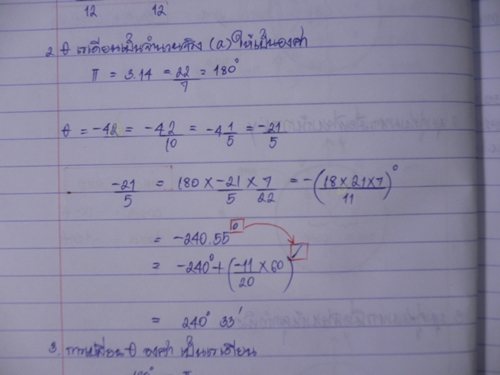 12 12
2. θ เรเดียนเป็นจำนวนจริง (a) ให้เป็นองศา
π = 3.14 = 22/7 = 180°
θ = -42 = -42/10 = -4 1/5 = -21/5
-21/5 = 180 × -21/5 × 7/22 = -(18×21×7/11)°
= -240.55°
= -240° + (-11/20 × 60)′
= 240° 33′
3. การเปลี่ยน θ องศา เป็นเรเดียน